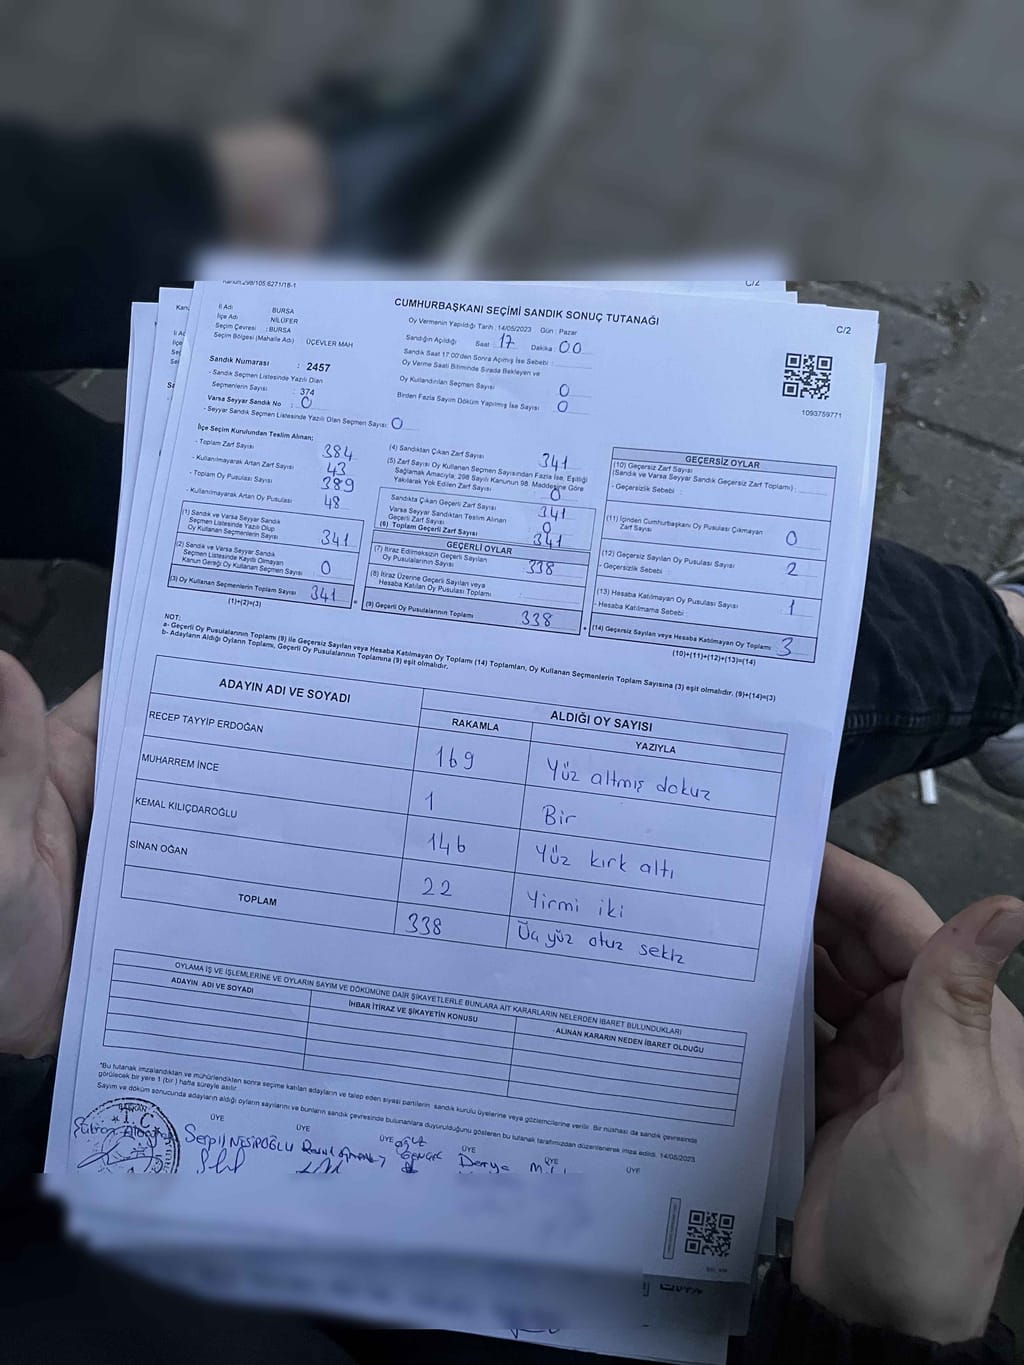 Kanun:298/105,6271/18-1
C/2
CUMHURBAŞKANI SEÇİMİ SANDIK SONUÇ TUTANAĞI
C/2
İl Adı : BURSA
İlçe Adı : NİLÜFER
Seçim Çevresi : BURSA
Seçim Bölgesi (Mahalle Adı) : ÜÇEVLER MAH
Oy Vermenin Yapıldığı Tarih : 14/05/2023 Gün : Pazar
Sandığın Açıldığı Saat : 17 Dakika : 00
Sandık Saat 17:00'den Sonra Açılmış İse Sebebi :
Oy Verme Saati Bitiminde Sırada Bekleyen ve
Oy Kullandırılan Seçmen Sayısı : 0
Birden Fazla Sayım Döküm Yapılmış İse Sayısı : 0
1093759771
Sandık Numarası : 2457
- Sandık Seçmen Listesinde Yazılı Olan
Seçmenlerin Sayısı : 374
Varsa Seyyar Sandık No : 0
- Seyyar Sandık Seçmen Listesinde Yazılı Olan Seçmen Sayısı : 0
İlçe Seçim Kurulundan Teslim Alınan;
- Toplam Zarf Sayısı : 384
- Kullanılmayarak Artan Zarf Sayısı : 43
- Toplam Oy Pusulası Sayısı : 389
- Kullanılmayarak Artan Oy Pusulası : 48
(1) Sandık ve Varsa Seyyar Sandık
Seçmen Listesinde Yazılı Olup
Oy Kullanan Seçmenlerin Sayısı : 341
(2) Sandık ve Varsa Seyyar Sandık
Seçmen Listesinde Kayıtlı Olmayan
Kanun Gereği Oy Kullanan Seçmen Sayısı : 0
(3) Oy Kullanan Seçmenlerin Toplam Sayısı : 341
(1)+(2)=(3)
(4) Sandıktan Çıkan Zarf Sayısı : 341
(5) Zarf Sayısı Oy Kullanan Seçmen Sayısından Fazla İse, Eşitliği
Sağlamak Amacıyla, 298 Sayılı Kanunun 98. Maddesine Göre
Yakılarak Yok Edilen Zarf Sayısı : 0
Sandıkta Çıkan Geçerli Zarf Sayısı : 341
Varsa Seyyar Sandıktan Teslim Alınan
Geçerli Zarf Sayısı : 0
(6) Toplam Geçerli Zarf Sayısı : 341
GEÇERLİ OYLAR
(7) İtiraz Edilmeksizin Geçerli Sayılan
Oy Pusulalarının Sayısı : 338
(8) İtiraz Üzerine Geçerli Sayılan veya
Hesaba Katılan Oy Pusulası Toplamı :
(9) Geçerli Oy Pusulalarının Toplamı : 338
GEÇERSİZ OYLAR
(10) Geçersiz Zarf Sayısı
(Sandık ve Varsa Seyyar Sandık Geçersiz Zarf Toplamı) :
- Geçersizlik Sebebi :
(11) İçinden Cumhurbaşkanı Oy Pusulası Çıkmayan
Zarf Sayısı : 0
(12) Geçersiz Sayılan Oy Pusulası Sayısı : 2
- Geçersizlik Sebebi :
(13) Hesaba Katılmayan Oy Pusulası Sayısı : 1
- Hesaba Katılmama Sebebi :
(14) Geçersiz Sayılan veya Hesaba Katılmayan Oy Toplamı : 3
(10)+(11)+(12)+(13)=(14)
NOT:
a- Geçerli Oy Pusulalarının Toplamı (9) ile Geçersiz Sayılan veya Hesaba Katılmayan Oy Toplamı (14) Toplamları, Oy Kullanan Seçmenlerin Toplam Sayısına (3) eşit olmalıdır. (9)+(14)=(3)
b- Adayların Aldığı Oyların Toplamı, Geçerli Oy Pusulalarının Toplamına (9) eşit olmalıdır.
ADAYIN ADI VE SOYADI ALDIĞI OY SAYISI
RAKAMLA YAZIYLA
RECEP TAYYİP ERDOĞAN 169 Yüz altmış dokuz
MUHARREM İNCE 1 Bir
KEMAL KILIÇDAROĞLU 146 Yüz kırk altı
SİNAN OĞAN 22 Yirmi iki
TOPLAM 338 Üç yüz otuz sekiz
OYLAMA İŞ VE İŞLEMLERİNE VE OYLARIN SAYIM VE DÖKÜMÜNE DAİR ŞİKAYETLERLE BUNLARA AİT KARARLARIN NELERDEN İBARET BULUNDUKLARI
ADAYIN ADI VE SOYADI İHBAR İTİRAZ VE ŞİKAYETİN KONUSU ALINAN KARARIN NEDEN İBARET OLDUĞU
"Bu tutanak imzalandıktan ve mühürlendikten sonra seçime katılan adayların ve talep eden siyasi partilerin sandık kurulu üyelerine veya gözlemcilerine verilir. Bir nüshası da sandık çevresinde
görülecek bir yere 1 (bir) hafta süreyle asılır.
Sayım ve döküm sonucunda adayların aldığı oyların sayılarını ve bunların sandık çevresinde bulunanlara duyurulduğunu gösteren bu tutanak tarafımızdan düzenlenerek imza edildi. 14/05/2023
BAŞKAN ÜYE ÜYE ÜYE ÜYE ÜYE ÜYE
T.C.
Serpil NESİPOĞLU
Derya